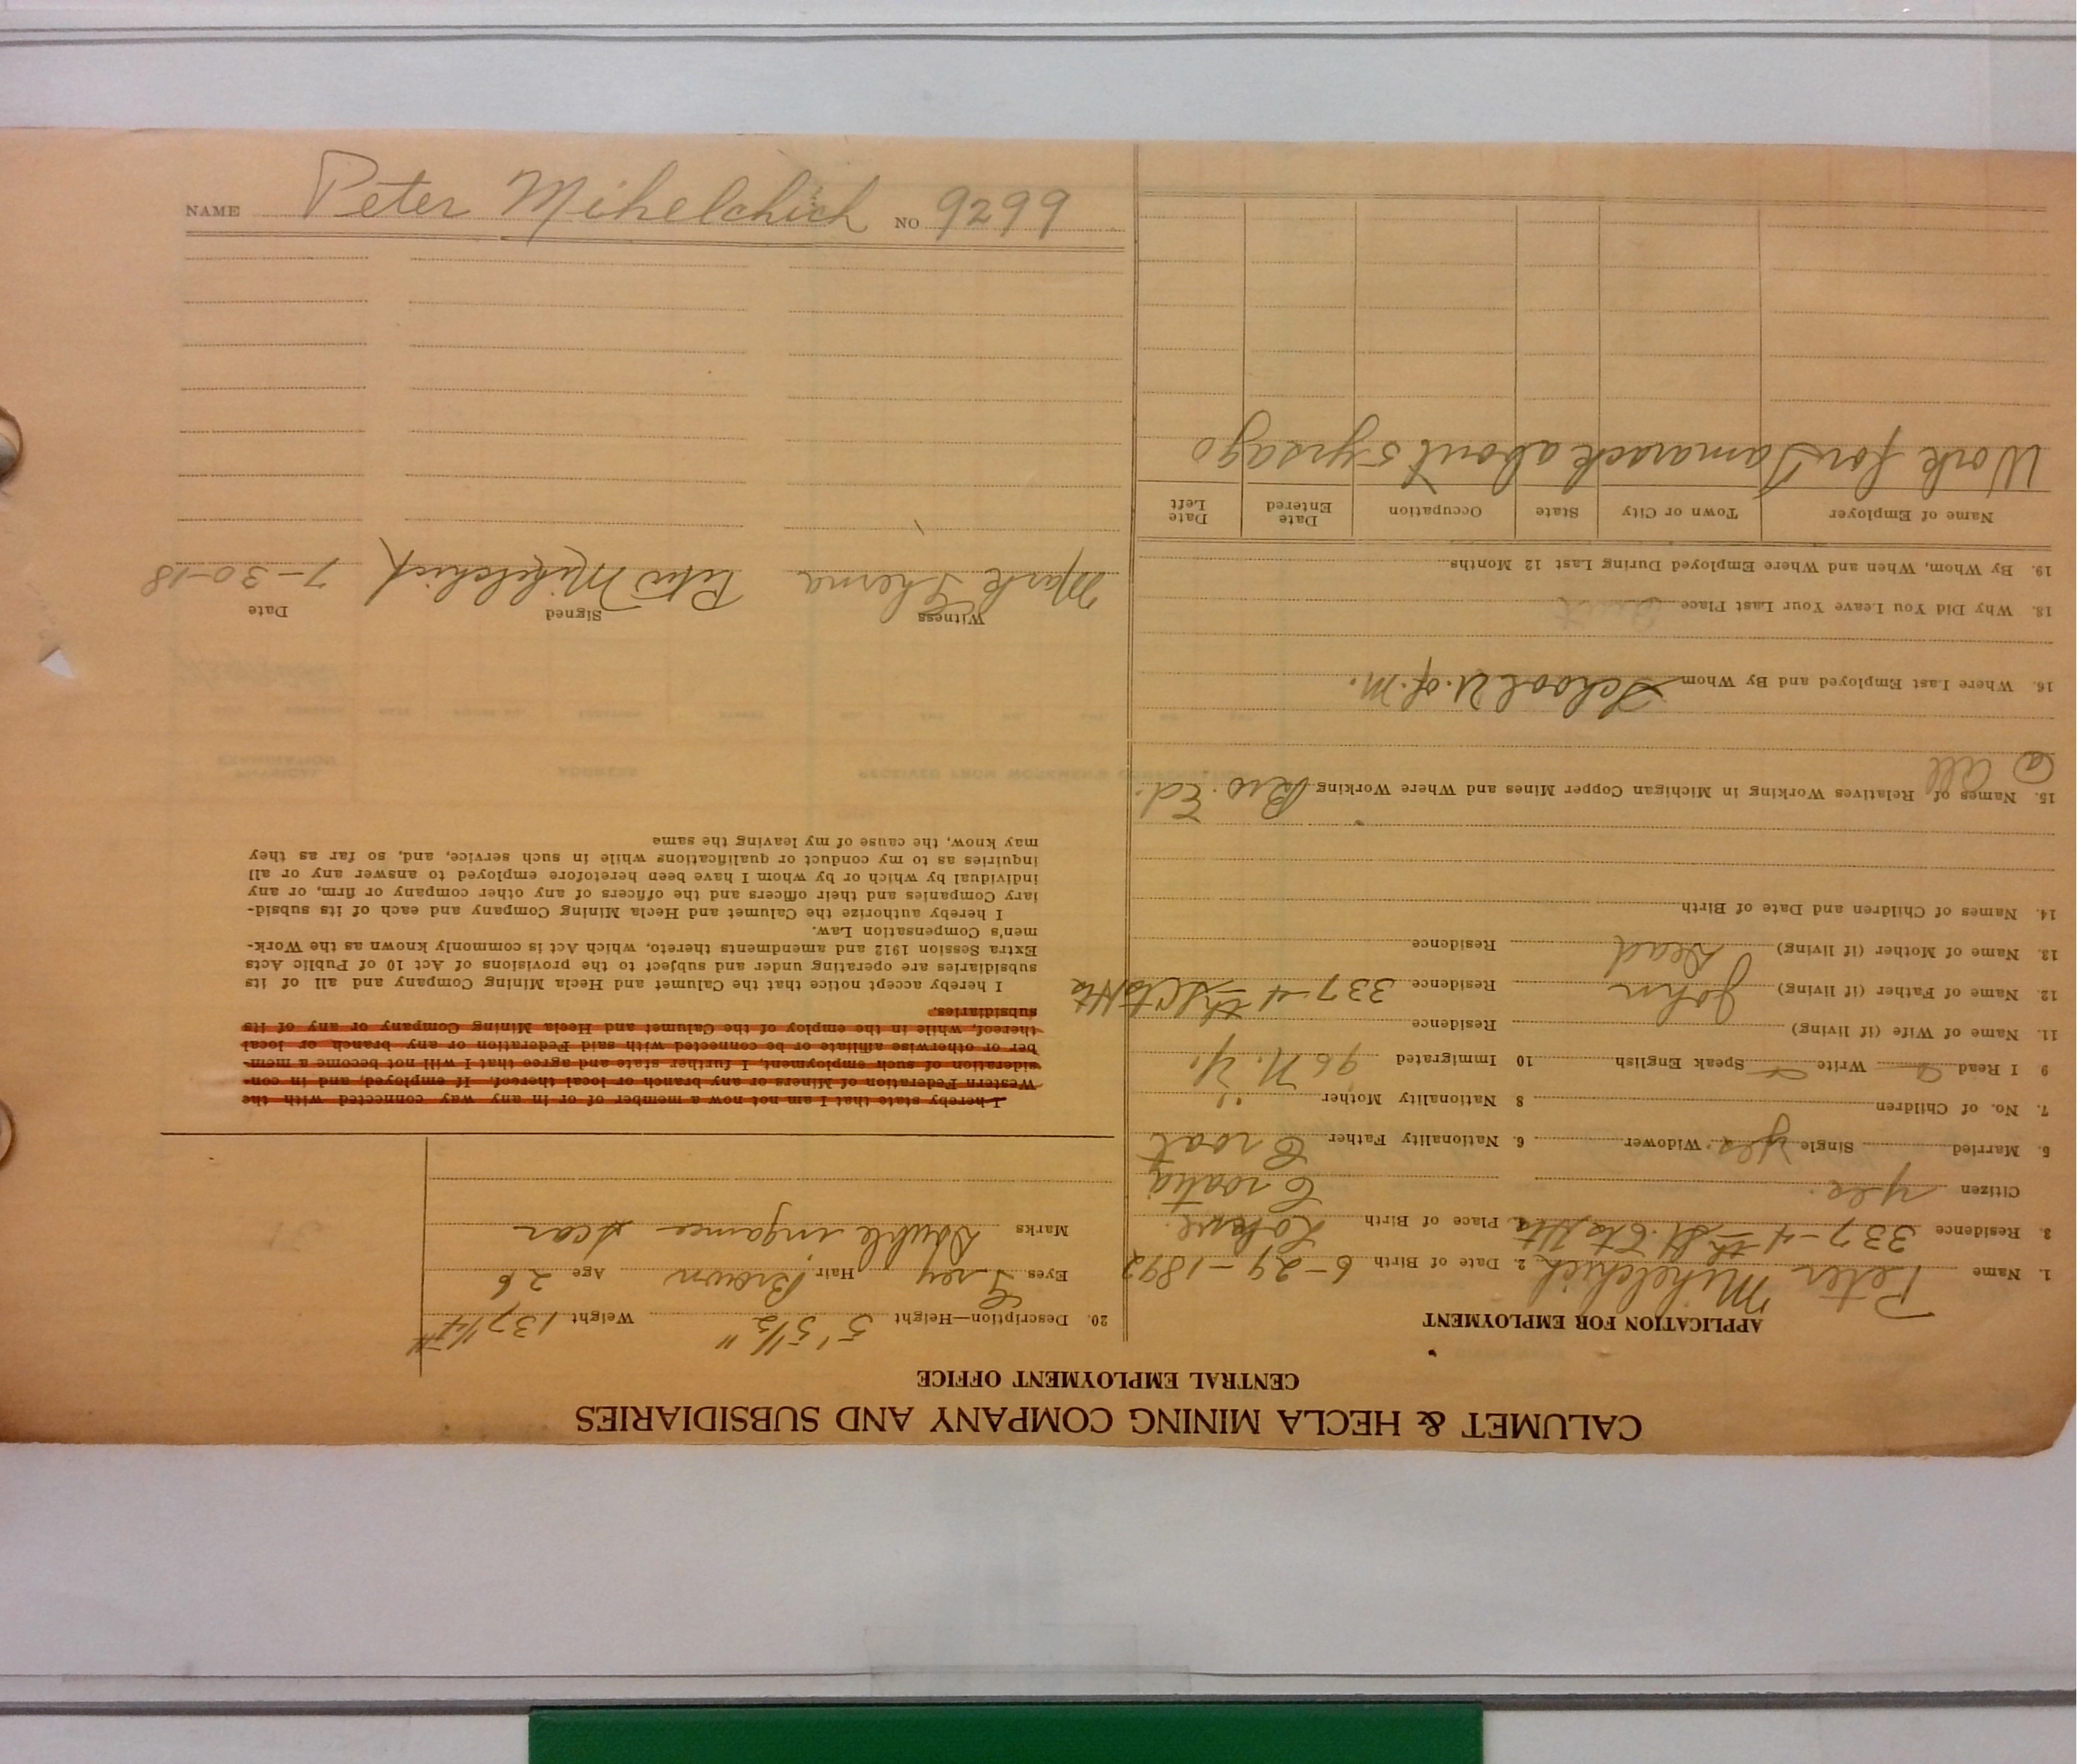 CALUMET & HECLA MINING COMPANY AND SUBSIDIARIES
CENTRAL EMPLOYMENT OFFICE
APPLICATION FOR EMPLOYMENT
1. Name Peter Mihelchich 2. Date of Birth 6-29-1892
3. Residence 337-4th St. 4. Place of Birth
Citizen yes. Croatia
5. Married Single yes. Widower 6. Nationality Father Croat
7. No. of Children 8 Nationality Mother "
9 I Read Write Speak English 10 Immigrated 96 N. Y.
11. Name of Wife (if living) Residence
12. Name of Father (if living) John Residence 337-4th St
13. Name of Mother (if living) Dead Residence
14. Names of Children and Date of Birth
15. Names of Relatives Working in Michigan Copper Mines and Where Working Bro. Ed.
16. Where Last Employed and By Whom School U. of M.
18. Why Did You Leave Your Last Place
19. By Whom, When and Where Employed During Last 12 Months
Name of Employer Town or City State Occupation Date Entered Date Left
Work for Tamarack about 5 yrs ago
20. Description—Height 5' 5 1/2" Weight 137 1/4 #
Eyes Grey Hair Brown Age 26
Marks Double scar
I hereby state that I am not now a member of or in any way connected with the
Western Federation of Miners or any branch or local thereof. If employed, and in con-
sideration of such employment, I further state and agree that I will not become a mem-
ber or otherwise affiliate or be connected with said Federation or any branch or local
thereof, while in the employ of the Calumet and Hecla Mining Company or any of its
subsidiaries.
I hereby accept notice that the Calumet and Hecla Mining Company and all of its
subsidiaries are operating under and subject to the provisions of Act 10 of Public Acts
Extra Session 1912 and amendments thereto, which Act is commonly known as the Work-
men's Compensation Law.
I hereby authorize the Calumet and Hecla Mining Company and each of its subsid-
iary Companies and their officers and the officers of any other company or firm, or any
individual by which or by whom I have been heretofore employed to answer any or all
inquiries as to my conduct or qualifications while in such service, and, so far as they
may know, the cause of my leaving the same
Witness Signed Date
Mark Peter Mihelchich 7-30-18
NAME Peter Mihelchich NO 9299